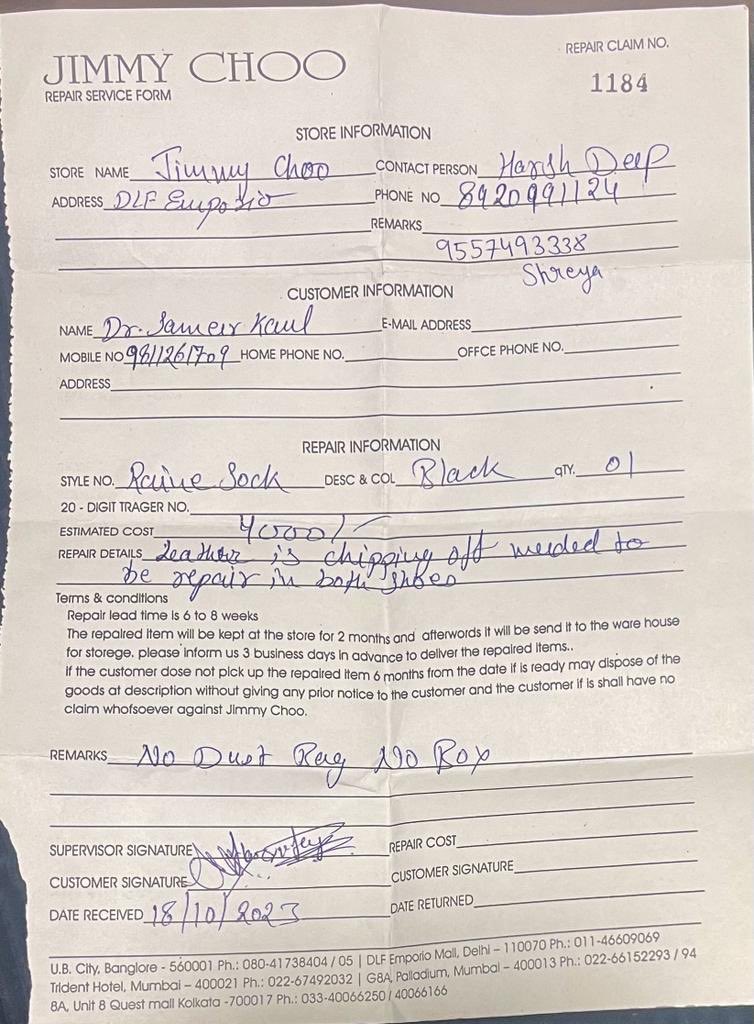 JIMMY CHOO
REPAIR SERVICE FORM
REPAIR CLAIM NO.
1184
STORE INFORMATION
STORE NAME Jimmy Choo CONTACT PERSON Harish Deep
ADDRESS DLF Emporio PHONE NO 8920991124
REMARKS
9557493338
Shreya
CUSTOMER INFORMATION
NAME Dr. Sameer Kaul E-MAIL ADDRESS
MOBILE NO 9811261709 HOME PHONE NO. OFFCE PHONE NO.
ADDRESS
REPAIR INFORMATION
STYLE NO. Raine Sock DESC & COL Black QTY. 01
20 - DIGIT TRAGER NO.
ESTIMATED COST 4000/-
REPAIR DETAILS Leather is chipping off needed to
be repair in both shoes
Terms & conditions
Repair lead time is 6 to 8 weeks
The repaired item will be kept at the store for 2 months and afterwords it will be send it to the ware house
for storege. please inform us 3 business days in advance to deliver the repaired items..
If the customer dose not pick up the repaired item 6 months from the date if is ready may dispose of the
goods at description without giving any prior notice to the customer and the customer if is shall have no
claim whofsoever against Jimmy Choo.
REMARKS No Dust Bag No Box
SUPERVISOR SIGNATURE REPAIR COST
CUSTOMER SIGNATURE CUSTOMER SIGNATURE
DATE RECEIVED 18/10/2023 DATE RETURNED
U.B. City, Banglore - 560001 Ph.: 080-41738404 / 05 | DLF Emporio Mall, Delhi – 110070 Ph.: 011-46609069
Trident Hotel, Mumbai – 400021 Ph.: 022-67492032 | G8A, Palladium, Mumbai – 400013 Ph.: 022-66152293 / 94
8A, Unit 8 Quest mall Kolkata -700017 Ph.: 033-40066250 / 40066166